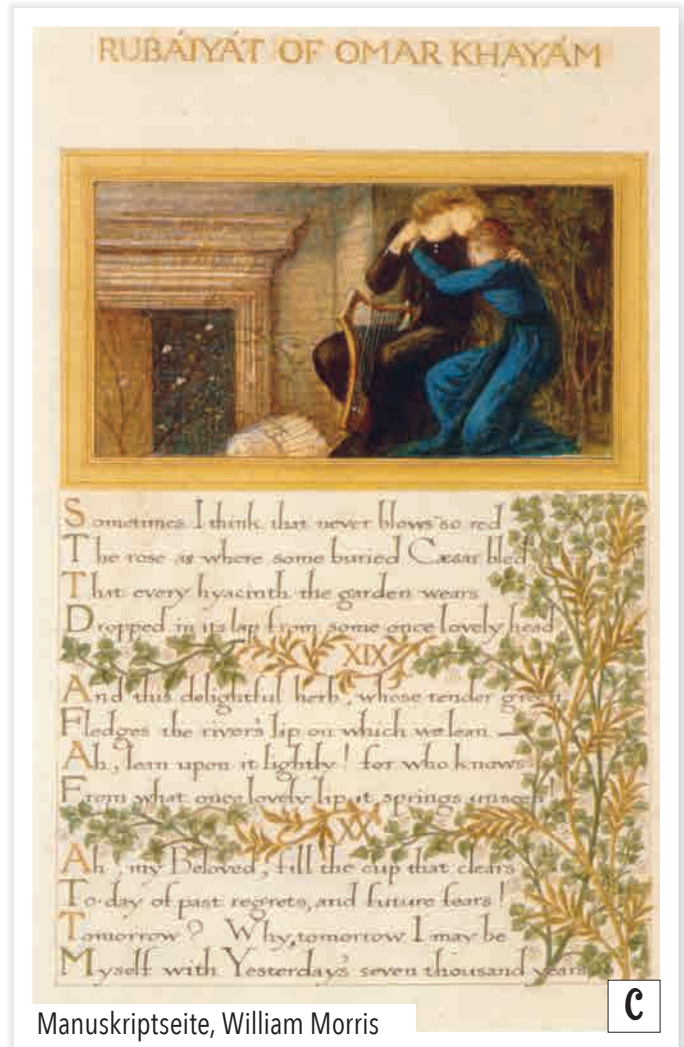 RUBÁIYÁT OF OMAR KHAYÁM
Sometimes I think that never blows so red
The rose as where some buried Cæsar bled
That every hyacinth the garden wears
Dropped in its lap from some once lovely head
XIX
And this delightful herb, whose tender green
Fledges the river's lip on which we lean —
Ah, lean upon it lightly! for who knows
From what once lovely lip it springs unseen!
XX
Ah, my Beloved, fill the cup that clears
To-day of past regrets, and future fears!
Tomorrow? Why, tomorrow I may be
Myself with Yesterday's seven thousand years
Manuskriptseite, William Morris
C